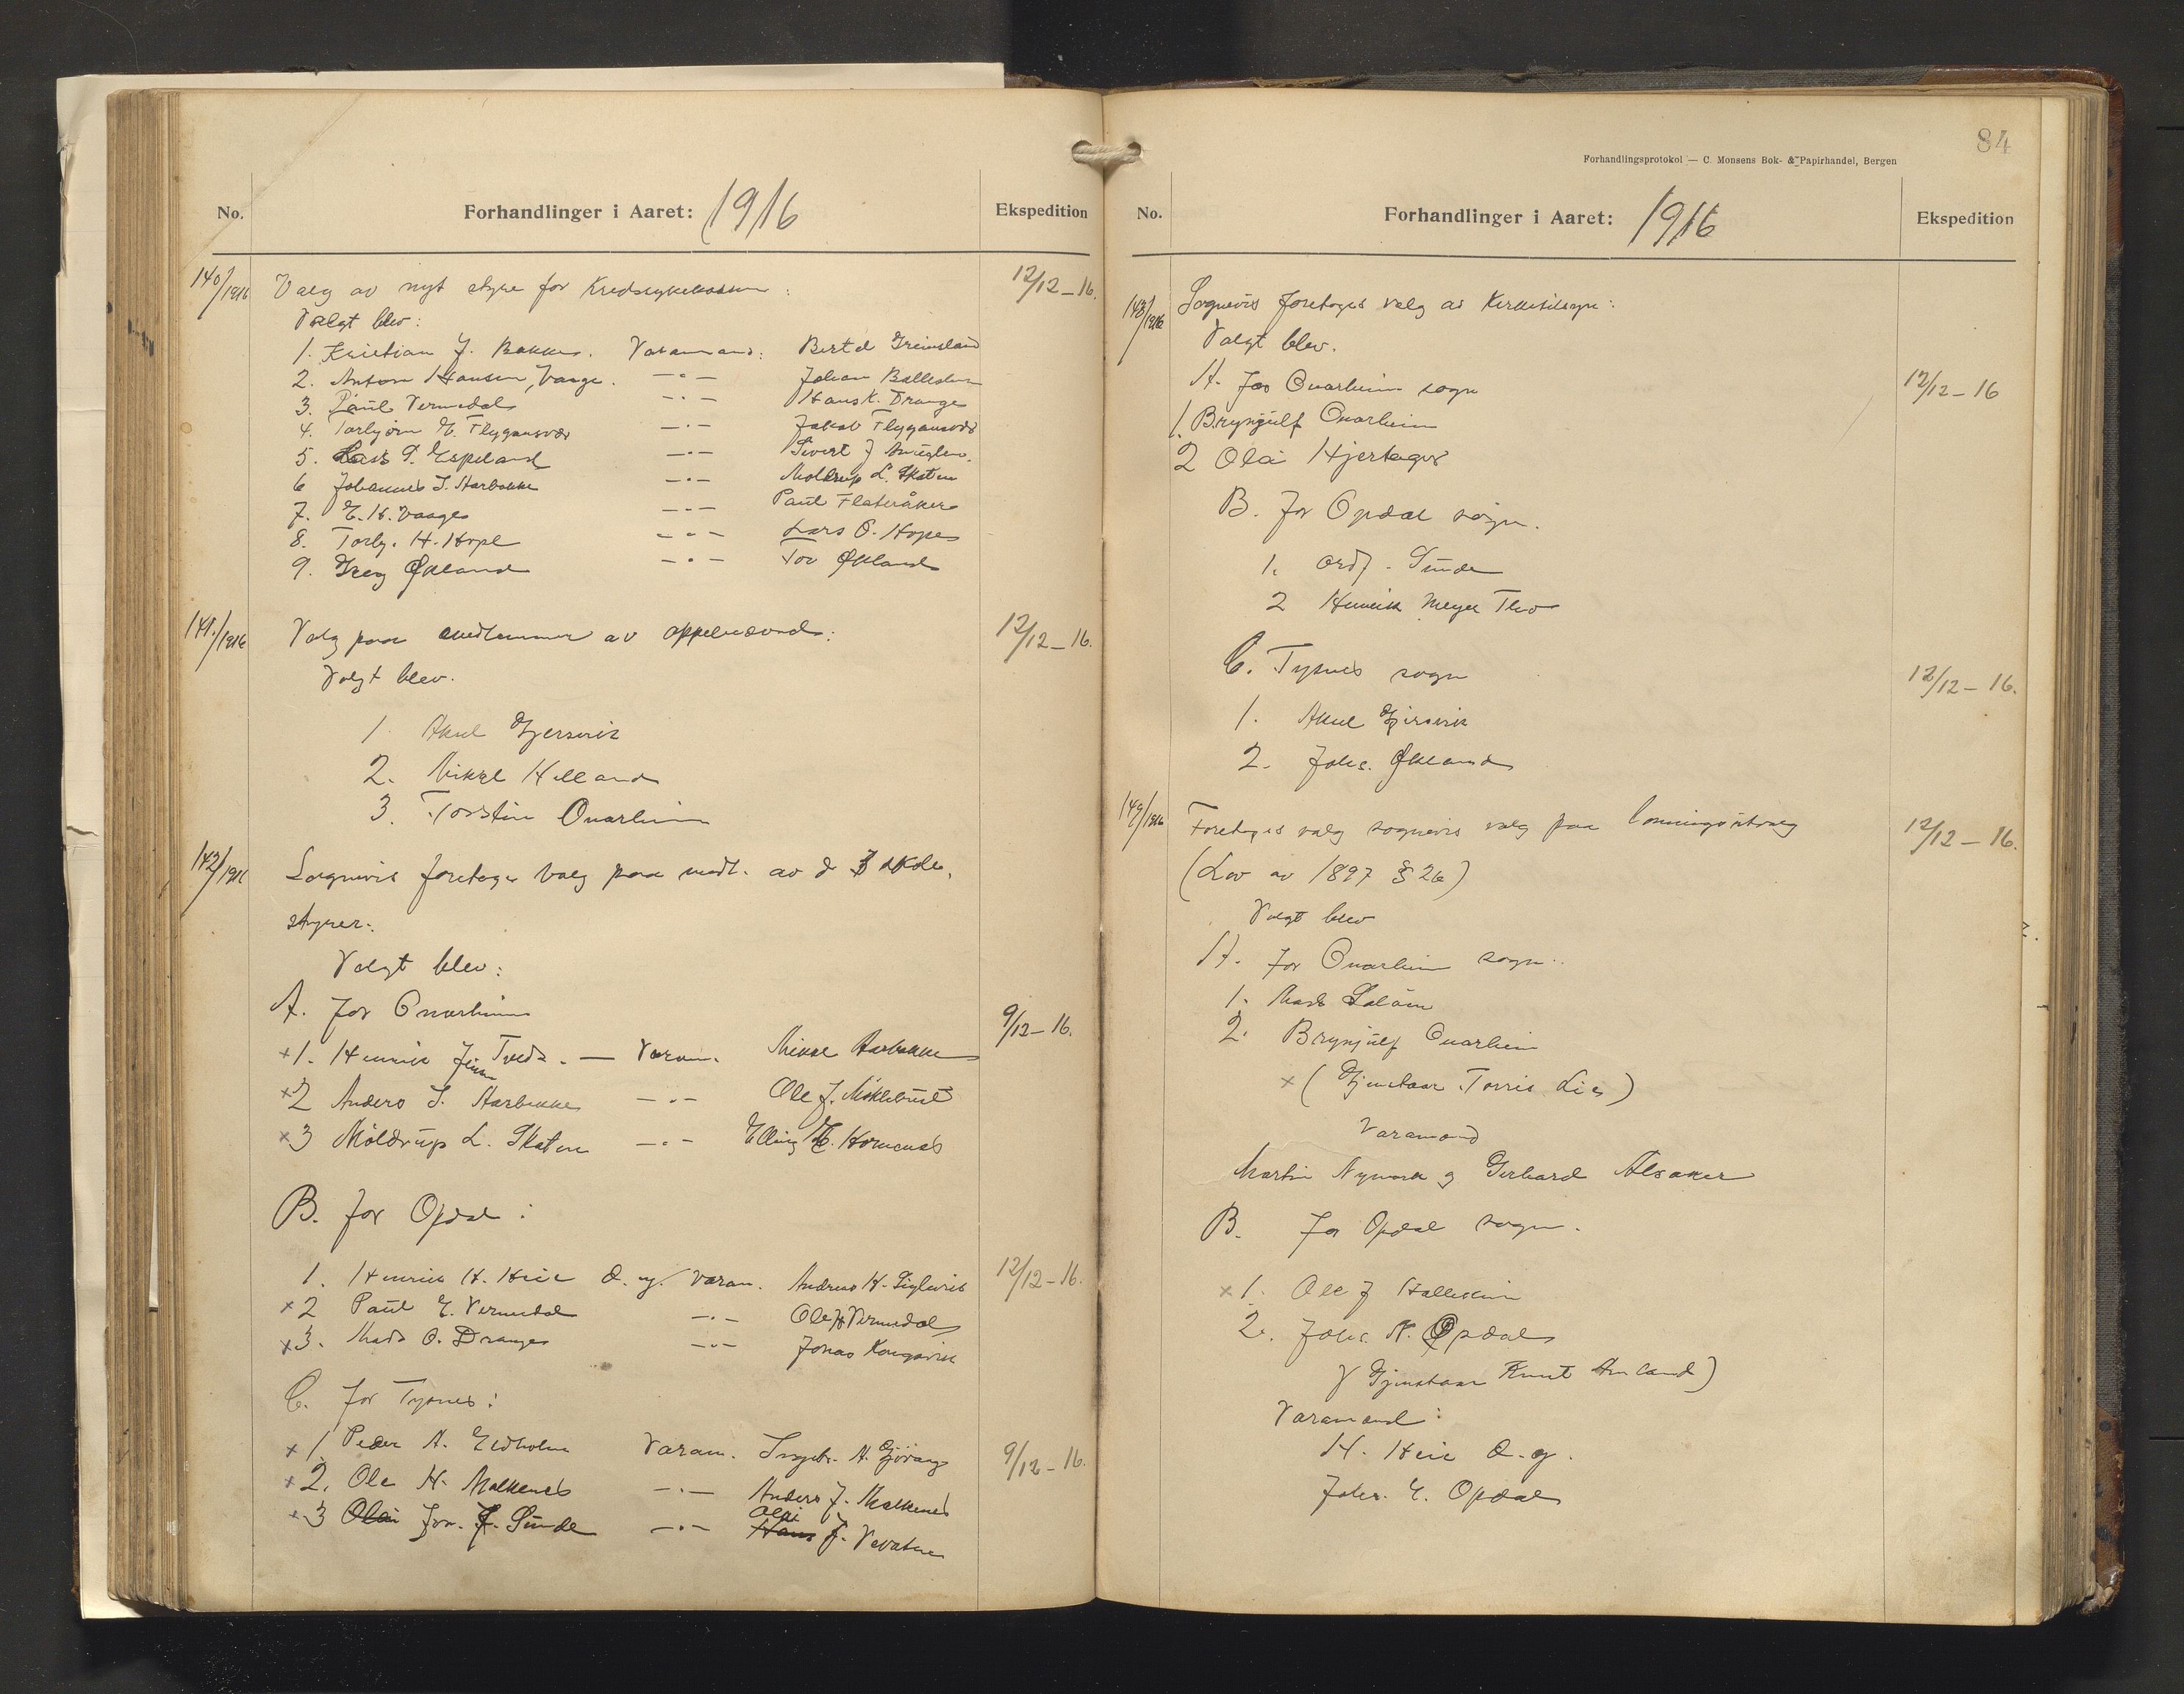 No.
Forhandlinger i Aaret: 1916
Ekspedition
140/1916 Valg av nyt styre for Kredssykekassen: 12/12-16.
Valgt blev:
1. Kristian J. Bakke. Varamand: Bertel Greinsland
2. Anton Hansen, Vaage. —"— Johan
3. Paul Vermedal —"— Hans K. Drange
4. Torbjørn E. Flygansvær —"— Jakob Flygansvær
5. Lars P. Espeland —"— Sivert J
6 Johannes J. Aarbakke —"— Moldrup L. Skaten
7. E. H. Vaage —"— Paul Flateråker
8. Torbj. H. Hope —"— Lars O. Hope
9. Greg Økland —"— Tor Økland
141./1916 Valg paa medlemmer av appelnævnd: 12/12-16.
Valgt blev.
1 Aksel Gjersvik
2. Mikal Helland
3. Torstein Onarheim
142/1916 Sognevis foretages valg paa medl. av de 3 skole-
styrer.
Valgt blev:
A. for Onarheim 9/12-16.
x1. Henrik Jensen Tveda. — Varam. Mikal Aarbakke
x2 Anders J. Aarbakke —"— Ole J. Miklebust
x3 Moldrup L. Skaten —"— Elling E. Hornenes
B. for Opdal:
1. Henrik H. Heie d. y. Varam. Andreas H. 12/12-16.
x2 Paul E. Vermedal —"— Ole H Vermedal
x3. Mads O. Drange —"— Jonas Kongsvik
C. for Tysnes:
x1. Peder A. Eidholm Varam. Ingebr. A. Gjøvaag 9/12-16.
x2. Ole H. Malkenes —"— Anders J. Malkenes
x3 Olai Jon. J. Sunde —"— Hans Olai J. Vevatne
84
Forhandlingsprotokol — C. Monsens Bok- & Papirhandel, Bergen
No.
Forhandlinger i Aaret: 1916
Ekspedition
148/1916 Sognevis foretages valg av Kirketilsyn:
Valgt blev.
A. for Onarheim sogn 12/12-16
1. Brynjulf Onarheim
2 Ola Hjertager
B. for Opdal sogn.
1. ordf. Sunde
2 Henrik Meyer Tho
C. Tysnes sogn 12/12-16.
1. Aksel Gjersvik
2. Johs. Økland
149/1916 Foretages valg sognevis valg paa lønningsutvalg 12/12-16.
(Lov av 1897 § 26)
Valgt blev
A. for Onarheim sogn.
1. Mads
2. Brynjulf Onarheim
x (Gjenstaar Torris Lie)
Varamænd
Martin Nymark og Gerhard Alsaker
B. for Opdal sogn.
x 1. Ole J Hallekim
2. Johs. N. Opdal
(Gjenstaar Knut)
Varamænd:
H. Heie d. y.
Johs. E. Opdal